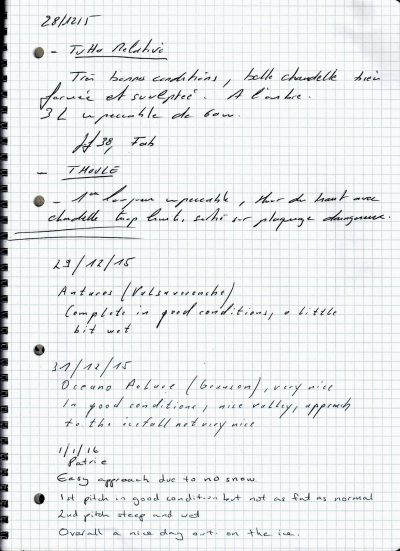 28/12/15
- Tutto Relativo
Très bonnes conditions, belle chandelle bien
formée et sculptée. A l'ombre.
3 L impeccable de 60m.
JJ 38, Fab
- THOULE
- 1ère longueur impeccable, mur du haut avec
chandelle trop limite, sortie sur plaquage dangereux.
29/12/15
Antares (Valsavarenche)
Complete in good conditions, a little
bit wet
31/12/15
Oceano Polare (Grauson), very nice
In good conditions, nice valley, approach
to the icefall not very nice
1/1/16
Patrie
Easy approach due to no snow
1st pitch in good condition but not as fat as normal
2nd pitch steep and wet
Overall a nice day out on the ice.